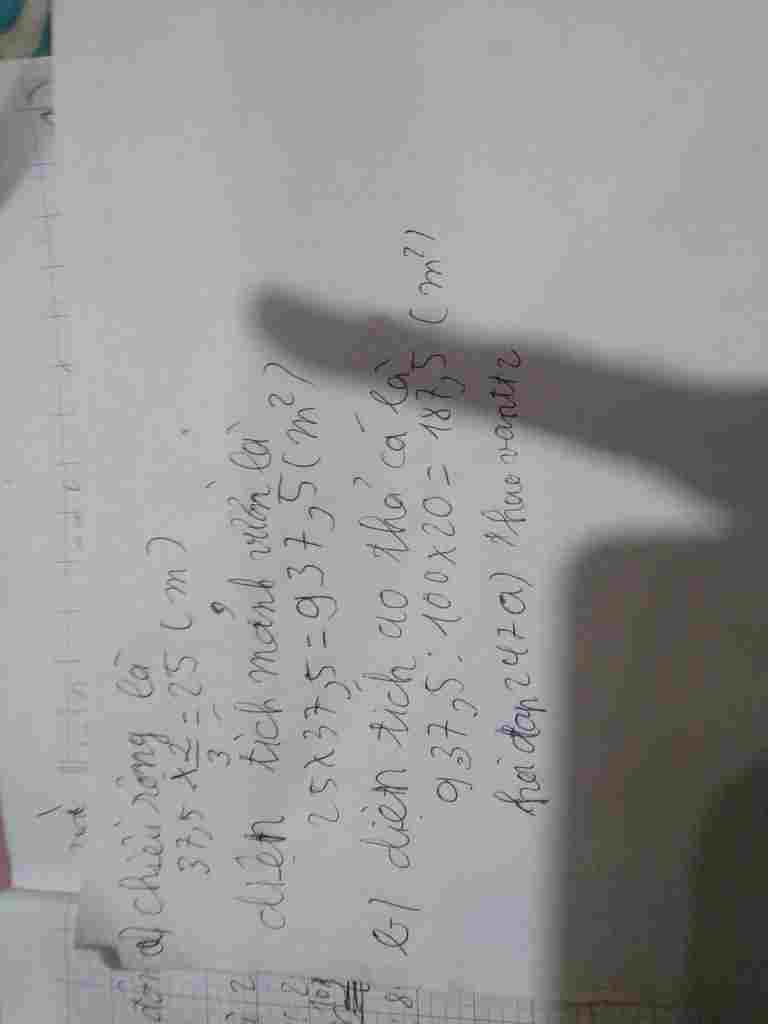 a) chiều rộng là
37,5 x 2/3 = 25 (m)
diện tích mảnh vườn là
25 x 37,5 = 937,5 (m²)
b) diện tích ao thả cá là
937,5 : 100 x 20 = 187,5 (m²)
hỏi đáp 247 a) thao van